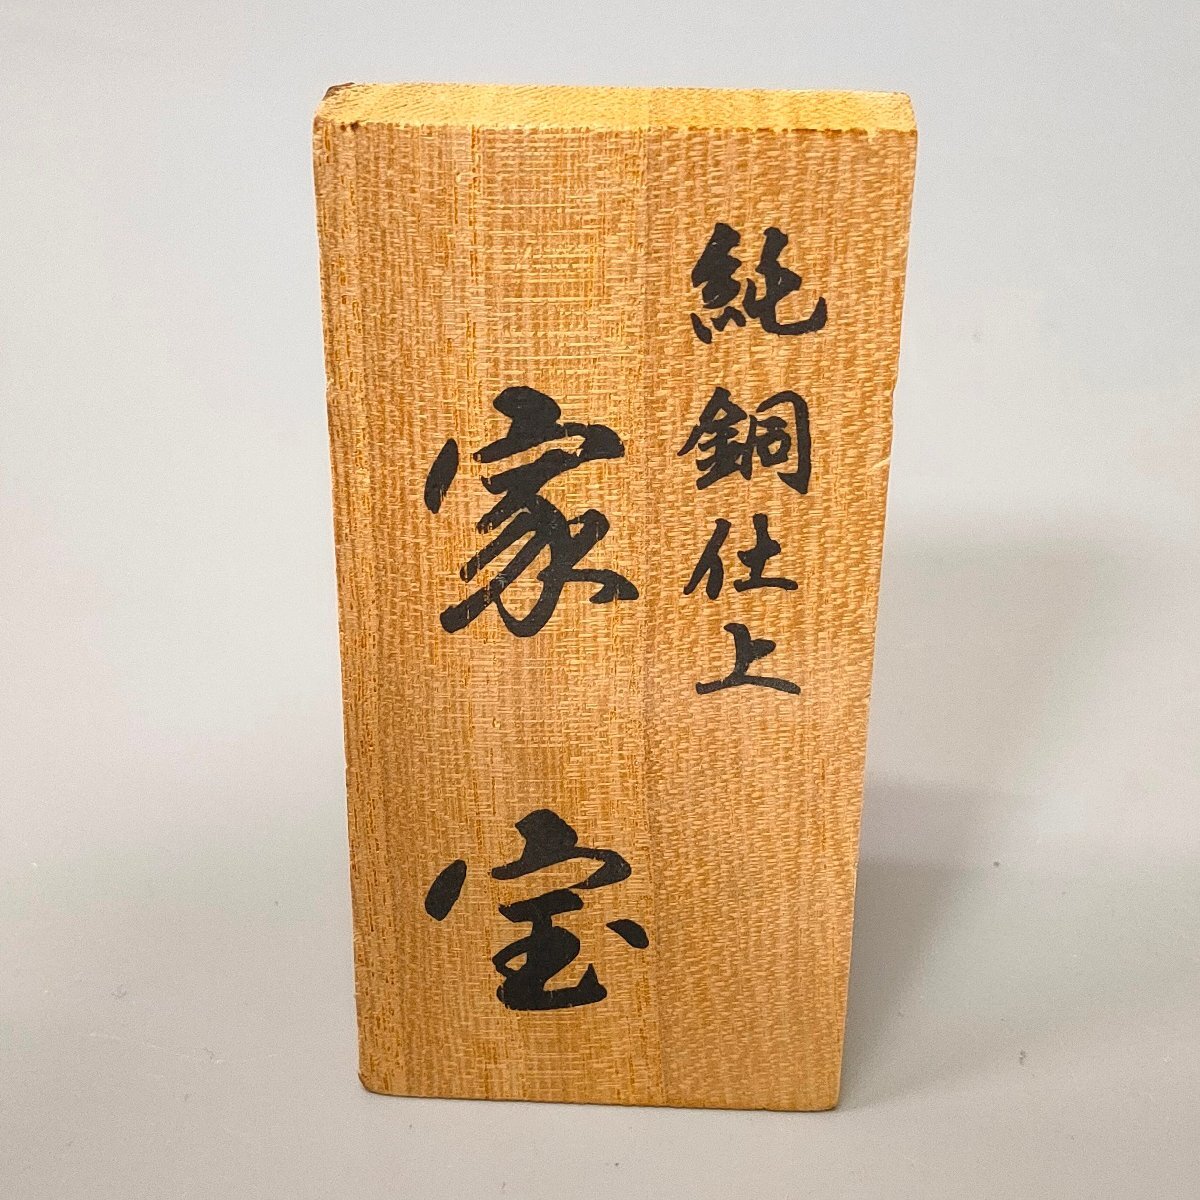 純銅仕上
家宝